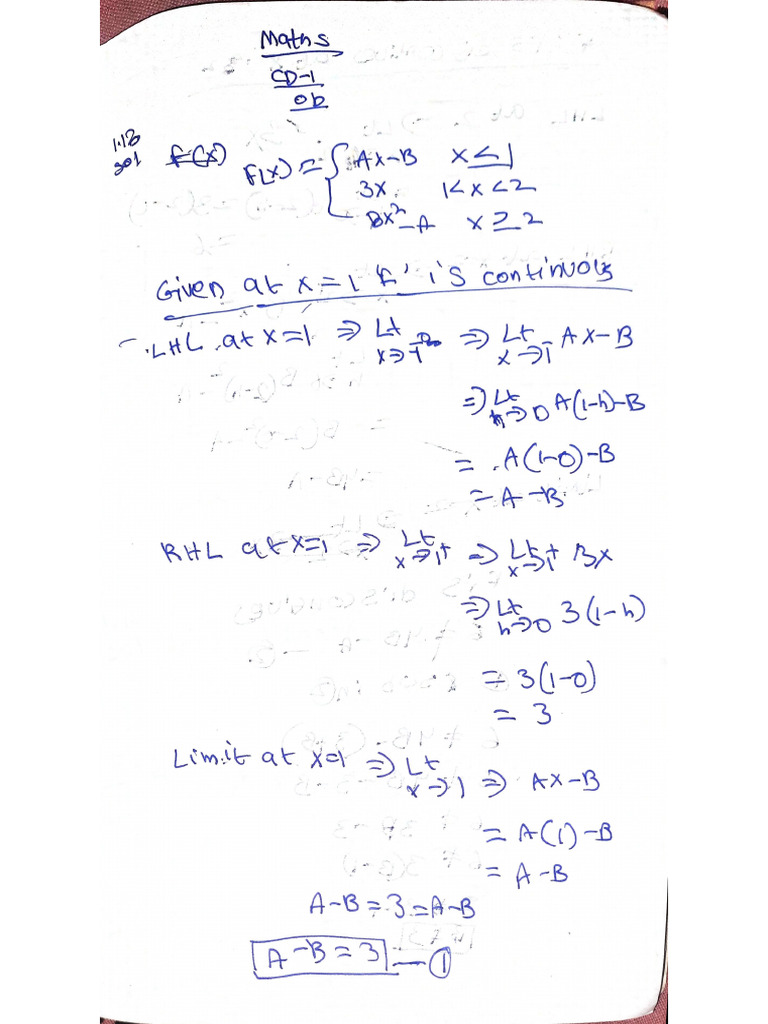 Maths
CD-1
Ob
1.1B
f(x) F(x) = { Ax-B x ≤ 1
3x 1<x<2
Bx²-A x ≥ 2
Given at x=1 'f' is continuous
LHL at x=1 ⇒ Lt x→1⁻ ⇒ Lt x→1⁻ Ax-B
⇒ Lt h→0 A(1-h)-B
= A(1-0)-B
= A-B
RHL at x=1 ⇒ Lt x→1+ ⇒ Lt x→1+ 3x
⇒ Lt h→0 3(1-h)
= 3(1-0)
= 3
Limit at x=1 ⇒ Lt x→1 ⇒ Ax-B
= A(1)-B
= A-B
A-B = 3 = A-B
A-B = 3 —①